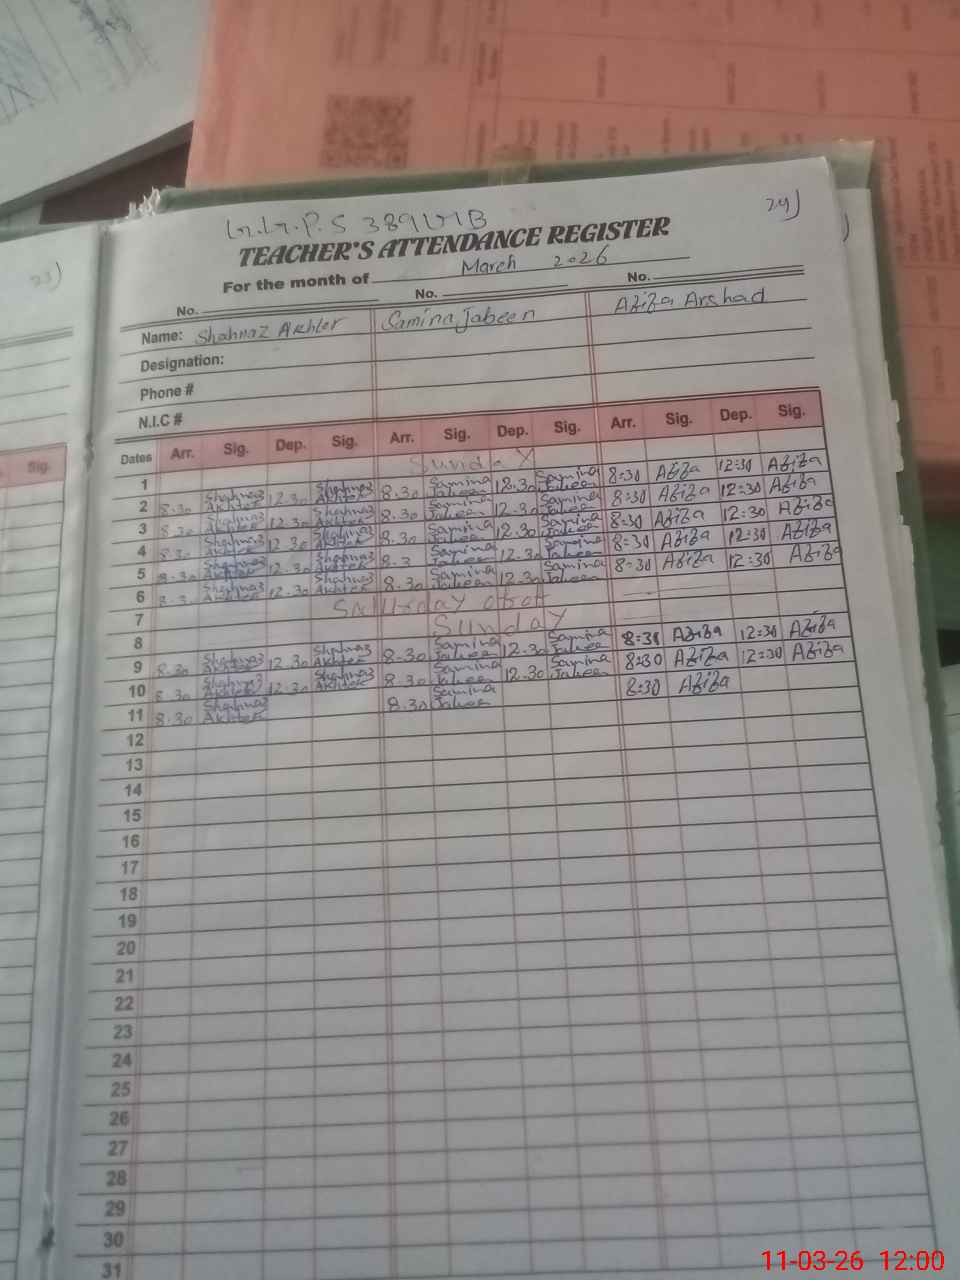 24)
G.G.P.S 389WB
TEACHER'S ATTENDANCE REGISTER
For the month of March 2026
No. No. No.
Name: Shahnaz Akhter Samina Jabeen Aziza Arshad
Designation:
Phone #
N.I.C #
Dates Arr. Sig. Dep. Sig. Arr. Sig. Dep. Sig. Arr. Sig. Dep. Sig.
1 Sunday
2 8.30 Shahnaz Akhter 12.30 Shahnaz Akhter 8.30 Samina Jabeen 12.30 Samina Jabeen 8:30 Aziza 12:30 Aziza
3 8.30 Shahnaz Akhter 12.30 Shahnaz Akhter 8.30 Samina Jabeen 12.30 Samina Jabeen 8:30 Aziza 12:30 Aziza
4 8.30 Shahnaz Akhter 12.30 Shahnaz Akhter 8.30 Samina Jabeen 12.30 Samina Jabeen 8:30 Aziza 12:30 Aziza
5 8.30 Shahnaz Akhter 12.30 Shahnaz Akhter 8.3 Samina Jabeen 12.30 Samina Jabeen 8:30 Aziza 12:30 Aziza
6 8.3 Shahnaz Akhter 12.30 Shahnaz Akhter 8.30 Samina Jabeen 12.30 Samina Jabeen 8:30 Aziza 12:30 Aziza
7 Saturday
8 Sunday
9 8.30 Shahnaz Akhter 12.30 Shahnaz Akhter 8.30 Samina Jabeen 12.30 Samina Jabeen 8:30 Aziza 12:30 Aziza
10 8.30 Shahnaz Akhter 12.30 Shahnaz Akhter 8.30 Samina Jabeen 12.30 Samina Jabeen 8:30 Aziza 12:30 Aziza
11 8.30 Shahnaz Akhter 8.30 Samina Jabeen 8:30 Aziza
12
13
14
15
16
17
18
19
20
21
22
23
24
25
26
27
28
29
30
31
23)
Sig.
11-03-26 12:00